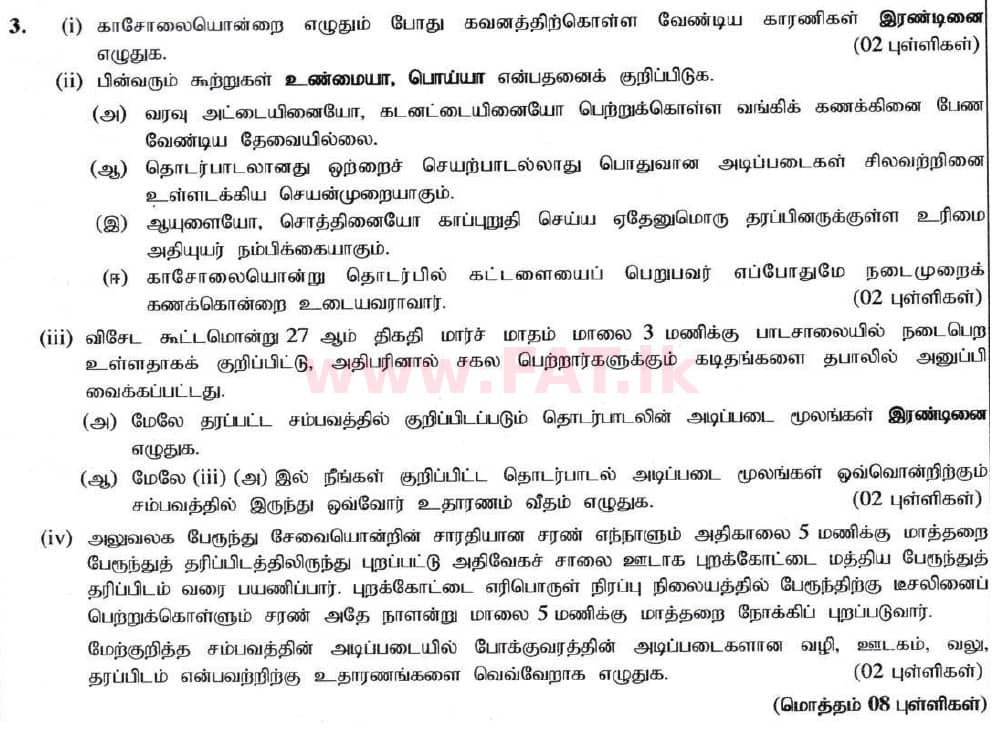 3. (i) காசோலையொன்றை எழுதும் போது கவனத்திற்கொள்ள வேண்டிய காரணிகள் இரண்டினை
எழுதுக. (02 புள்ளிகள்)
(ii) பின்வரும் கூற்றுகள் உண்மையா, பொய்யா என்பதனைக் குறிப்பிடுக.
(அ) வரவு அட்டையினையோ, கடனட்டையினையோ பெற்றுக்கொள்ள வங்கிக் கணக்கினை பேண
வேண்டிய தேவையில்லை.
(ஆ) தொடர்பாடலானது ஒற்றைச் செயற்பாடல்லாது பொதுவான அடிப்படைகள் சிலவற்றினை
உள்ளடக்கிய செயன்முறையாகும்.
(இ) ஆயுளையோ, சொத்தினையோ காப்புறுதி செய்ய ஏதேனுமொரு தரப்பினருக்குள்ள உரிமை
அதியுயர் நம்பிக்கையாகும்.
(ஈ) காசோலையொன்று தொடர்பில் கட்டளையைப் பெறுபவர் எப்போதுமே நடைமுறைக்
கணக்கொன்றை உடையவராவார். (02 புள்ளிகள்)
(iii) விசேட கூட்டமொன்று 27 ஆம் திகதி மார்ச் மாதம் மாலை 3 மணிக்கு பாடசாலையில் நடைபெற
உள்ளதாகக் குறிப்பிட்டு, அதிபரினால் சகல பெற்றார்களுக்கும் கடிதங்களை தபாலில் அனுப்பி
வைக்கப்பட்டது.
www.FAT.lk
(அ) மேலே தரப்பட்ட சம்பவத்தில் குறிப்பிடப்படும் தொடர்பாடலின் அடிப்படை மூலங்கள் இரண்டினை
எழுதுக.
(ஆ) மேலே (iii) (அ) இல் நீங்கள் குறிப்பிட்ட தொடர்பாடல் அடிப்படை மூலங்கள் ஒவ்வொன்றிற்கும்
சம்பவத்தில் இருந்து ஒவ்வோர் உதாரணம் வீதம் எழுதுக. (02 புள்ளிகள்)
(iv) அலுவலக பேருந்து சேவையொன்றின் சாரதியான சரண் எந்நாளும் அதிகாலை 5 மணிக்கு மாத்தறை
பேரூந்துத் தரிப்பிடத்திலிருந்து புறப்பட்டு அதிவேகச் சாலை ஊடாக புறக்கோட்டை மத்திய பேரூந்துத்
தரிப்பிடம் வரை பயணிப்பார். புறக்கோட்டை எரிபொருள் நிரப்பு நிலையத்தில் பேரூந்திற்கு டீசலினைப்
பெற்றுக்கொள்ளும் சரண் அதே நாளன்று மாலை 5 மணிக்கு மாத்தறை நோக்கிப் புறப்படுவார்.
மேற்குறித்த சம்பவத்தின் அடிப்படையில் போக்குவரத்தின் அடிப்படைகளான வழி, ஊடகம், வலு,
தரப்பிடம் என்பவற்றிற்கு உதாரணங்களை வெவ்வேறாக எழுதுக. (02 புள்ளிகள்)
(மொத்தம் 08 புள்ளிகள்)